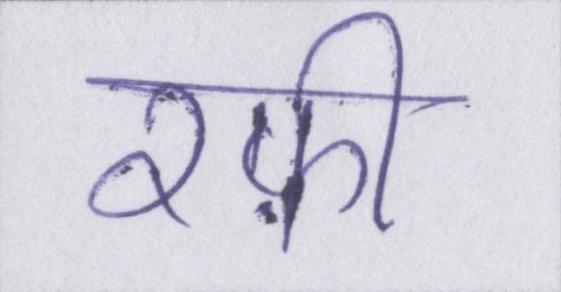 रफ़ी